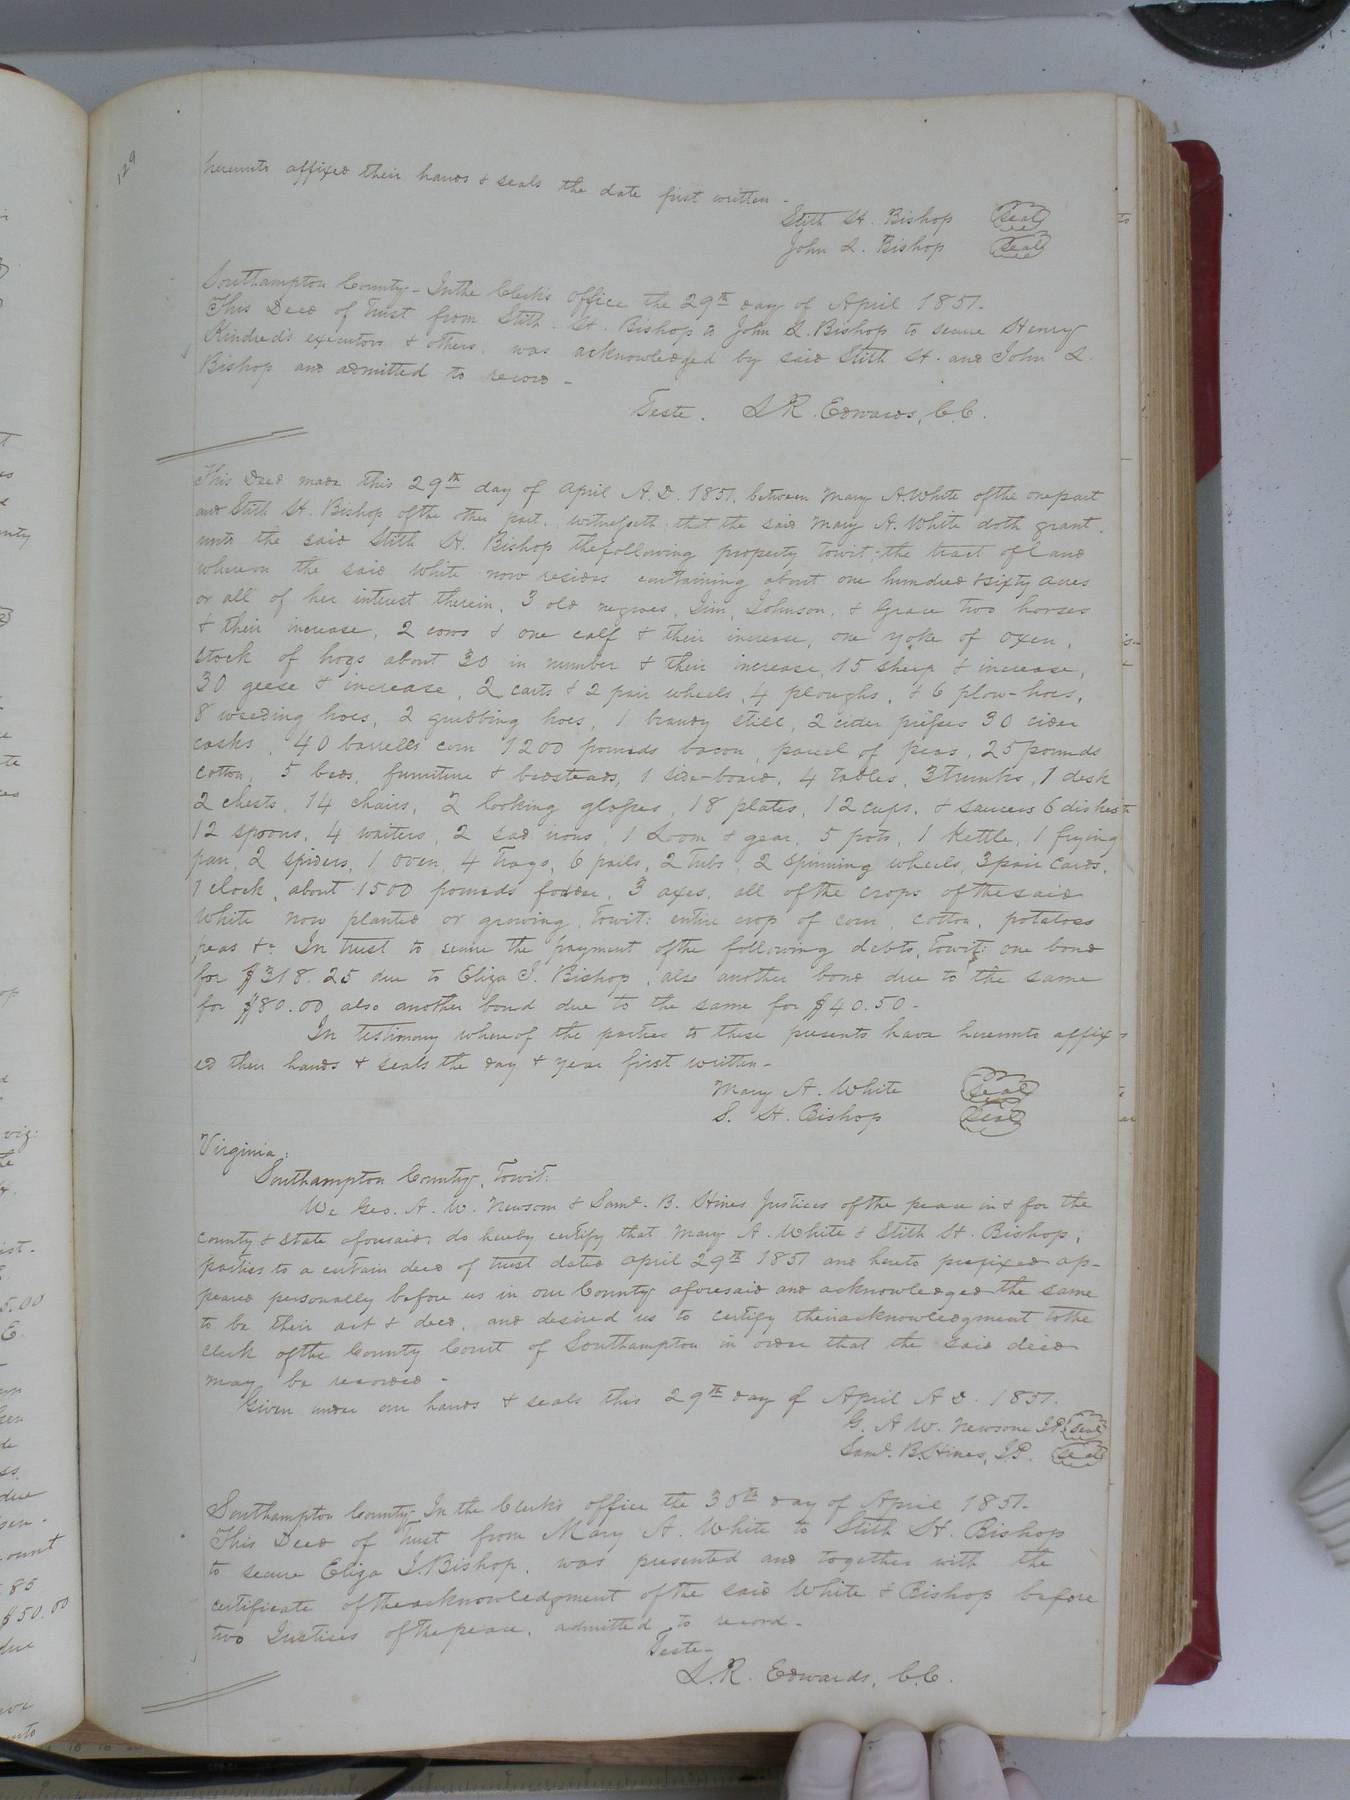 129
hereunto affixed their hands & seals the date first written -
Stith H. Bishop (Seal)
John L. Bishop (Seal)
Southampton County - In the Clerk's office the 29th day of April 1851.
This Deed of Trust from Stith H. Bishop to John L. Bishop to secure Henry
Kindred's executors & others, was acknowledged by said Stith H. and John L.
Bishop and admitted to record -
Teste. L R. Edwards, C.C.
This Deed made this 29th day of April A.D. 1851, between Mary A. White of the one part
and Stith H. Bishop of the other part, witnesseth: that the said Mary A. White doth grant
unto the said Stith H. Bishop the following property towit; the tract of land
whereon the said White now resides containing about one hundred & sixty acres
or all of her interest therein, 3 old negroes, Jim, Johnson, & Grace two horses
& their increase, 2 cows & one calf & their increase, one yoke of oxen,
stock of hogs about 30 in number & their increase, 15 sheep & increase,
30 geese & increase, 2 carts & 2 pair wheels, 4 ploughs, & 6 plow-hoes,
8 weeding hoes, 2 grubbing hoes, 1 brandy still, 2 cider presses 30 cider
casks, 40 barrells corn 1200 pounds bacon, parcel of peas, 25 pounds
cotton, 5 beds, furniture & bedsteads, 1 side-board, 4 tables, 3 trunks, 1 desk
2 chests, 14 chairs, 2 looking glasses, 18 plates, 12 cups, & saucers 6 dishes
12 spoons, 4 waiters, 2 sad irons, 1 Loom & gear, 5 pots, 1 Kettle, 1 frying
pan, 2 spiders, 1 oven, 4 Trays, 6 pails, 2 tubs, 2 spinning wheels, 3 pair cards,
1 clock, about 1500 pounds fodder, 3 axes, all of the crops of the said
White now planted or growing, towit: entire crop of corn, cotton, potatoes
peas &c. In trust to secure the payment of the following debts, towit: one bond
for $318.25 due to Eliza J. Bishop, also another bond due to the same
for $80.00 also another bond due to the same for $40.50 -
In testimony whereof the parties to these presents have hereunto affix
ed their hands & seals the day & year first written -
Mary A. White (Seal)
S. H. Bishop (Seal)
Virginia:
Southampton County, Towit:
We Geo. A. W. Newsom & Saml. B. Hines Justices of the peace in & for the
county & state aforesaid; do hereby certify that Mary A. White & Stith H. Bishop,
parties to a certain deed of trust dated april 29th 1851 and hereto prefixed ap-
peared personally before us in our County aforesaid and acknowledged the same
to be their act & deed, and desired us to certify their acknowledgment to the
clerk of the County Court of Southampton in order that the said deed
may be recorded -
Given under our hands & seals this 29th day of April A D. 1851.
G. A W. Newsom J.P. (Seal)
Saml. B. Hines, J.P. (Seal)
Southampton County In the Clerk's office the 30th day of April 1851.
This Deed of Trust from Mary A. White to Stith H. Bishop
to secure Eliza J. Bishop, was presented and together with the
certificate of the acknowledgment of the said White & Bishop before
two Justices of the peace, admitted to record -
Teste -
L.R. Edwards, C.C.